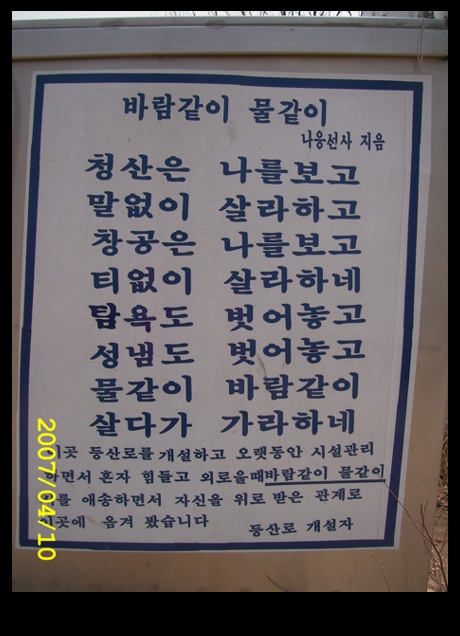 바람같이 물같이
나옹선사 지음
청산은 나를보고
말없이 살라하고
창공은 나를보고
티없이 살라하네
탐욕도 벗어놓고
성냄도 벗어놓고
물같이 바람같이
살다가 가라하네
이곳 등산로를 개설하고 오랫동안 시설관리
하면서 혼자 힘들고 외로울때 바람같이 물같이
를 애송하면서 자신을 위로 받은 관계로
이곳에 옴겨 봤습니다
등산로 개설자
2007/04/10